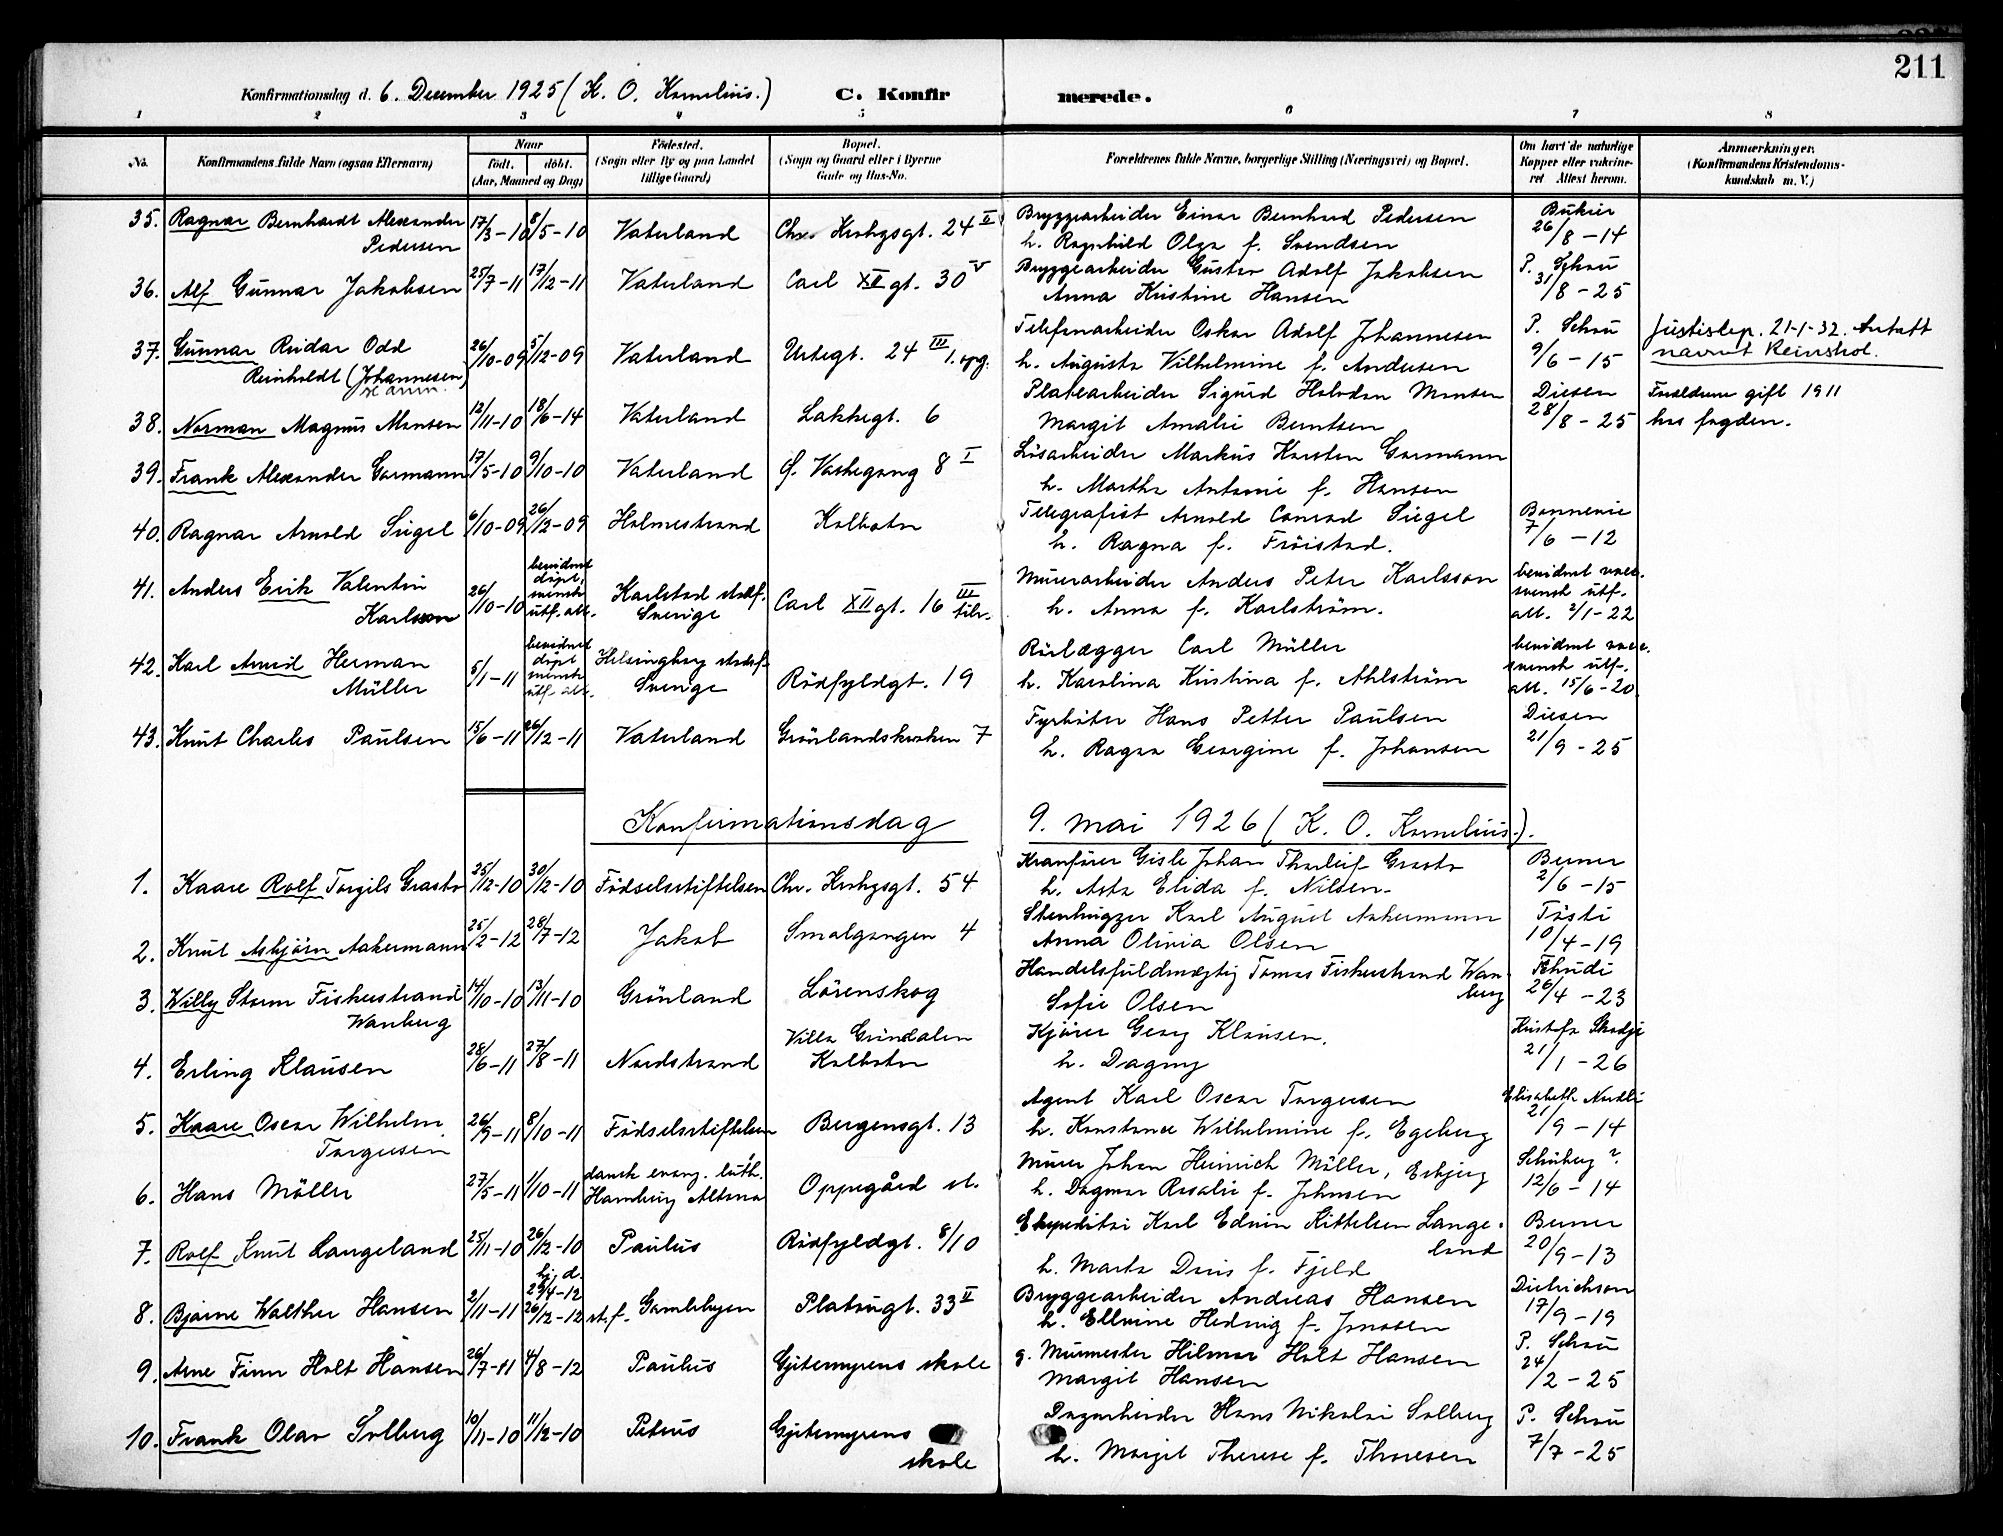 211
Konfirmationsdag d. 6. December 1925 (K. O. Kornelius.) C. Konfirmerede.
1 2 3 4 5 6 7 8
No. Konfirmandens fulde Navn (ogsaa Efternavn) Naar Fødested. Bopæl. Forældrenes fulde Navne, borgerlige Stilling (Næringsvei) og Bopæl. Om havt de naturlige Anmærkninger.
født. døbt. (Sogn eller By og paa Landet (Sogn og Gaard eller i Byerne Kopper eller vakcine- (Konfirmandens Kristendoms-
(Aar, Maaned og Dag) tillige Gaard) Gade og Hus-No. ret Attest herom. kundskab m. V.)
35. Ragnar Bernhardt Alexander 17/3-10 8/5-10 Vaterland Chr. Krohgsgt. 24 II Bryggearbeider Einar Bernhard Pedersen Bukier
Pedersen h. Ragnhild Olga f. Svendsen 26/8-14
36. Alf Gunnar Jakobsen 25/7-11 17/12-11 Vaterland Carl XII gt. 30 V Bryggearbeider Gustav Adolf Jakobsen P. Schou
Anna Kristine Hansen 31/8-25
37. Gunnar Reidar Odd 26/10-09 5/12-09 Vaterland Urtegt. 24 III 1. opg. Telefonarbeider Oskar Adolf Johannesen P. Schou Justisdep. 21-1-32. Antatt
Reinholdt (Johannesen) h. Augusta Vilhelmine f. Andersen 9/6-15 navnet Reinshol.
38. Norman Magnus Monsen 12/11-10 18/6-14 Vaterland Lakkegt. 6 Platearbeider Sigurd Halvdan Monsen Diesen Forældrene gift 1911
Margit Amalie Berntsen 28/8-25 hos fogden.
39. Frank Alexander Garmann 17/5-10 9/10-10 Vaterland Ø. Vaskegang 8 I Løsarbeider Markus Karsten Garmann
h. Martha Antonie f. Hansen
40. Ragnar Arnold Siegel 6/10-09 26/12-09 Holmestrand Kolbotn Telegrafist Arnold Conrad Siegel Bonnevie
h. Ragna f. Frøistad. 7/6-12
41. Anders Erik Valentin 26/10-10 bevidnet døpt, svensk utf. att. Karlstad stadsf. Carl XII gt. 16 III tilv. Murerarbeider Anders Peter Karlsson bevidnet vacc.
Karlsson Sverige h. Anna f. Karlström. svensk utf. att. 2/1-22
42. Karl Arvid Herman 5/1-11 bevidnet døpt svensk utf. att. Helsingborg stadsf. Rørlægger Carl Müller bevidnet vacc.
Müller Sverige Rødfyldgt. 19 h. Karolina Kristina f. Ahlström svensk utf. att. 15/6-20
43. Knut Charles Paulsen 15/6-11 26/12-11 Vaterland Grønlandskroken 7 Fyrbøter Hans Petter Paulsen Diesen
h. Ragna Georgine f. Johansen 21/9-25
Konfirmationsdag 9. mai 1926 (K. O. Kornelius.).
1. Kaare Rolf Torgils Grasto 25/12-10 30/12-10 Fødselsstiftelsen Chr. Krohgsgt. 54 Kranfører Gisle Johan Thorleif Grasto Berner
h. Asta Elida f. Nilsen. 2/6-15
2. Knut Asbjørn Aakermann 25/2-12 28/7-12 Jakob Smalgangen 4 Stenhugger Karl August Aakermann Tosti
Anna Olivia Olsen 10/4-19
3. Willy Storm Fiskerstrand 14/10-10 13/11-10 Grønland Lørenskog Handelsfuldmægtig Tomas Fiskerstrand Wanberg Tschudi
Wanberg Sofie Olsen 26/4-23
4. Erling Klausen 28/6-11 27/8-11 Nordstrand Villa Grindalen Kjører Georg Klausen.
Kolbotn h. Dagny 21/1-26
5. Kaare Oscar Wilhelm 26/9-11 8/10-11 Fødselsstiftelsen Bergensgt. 13 Agent Karl Oscar Torgersen
Torgersen h. Konstance Wilhelmine f. Egeberg 21/9-14
6. Hans Møller 27/5-11 1/10-11 dansk evang. luth. Oppegård st. Murer Johan Heinrich Møller, Esbjerg Schüberg?
Hamburg Altona h. Dagmar Rosalie f. Johnsen 12/6-14
7. Rolf Knut Langeland 25/11-10 26/12-10 Paulus Rødfyldgt. 8/10 Ekspeditør Karl Edvin Kittelsen Langeland Berner
h. Marta Doris f. Fjeld 20/9-13
8. Bjarne Walther Hansen 2/11-11 hj. d. 29/4-12 26/12-12 st. f. Gamlebyen Platougt. 33 II Bryggearbeider Andreas Hansen Dietrichson
h. Ellvine Hedvig f. Jonasen 17/9-19
9. Arne Finn Holt Hansen 26/7-11 4/8-12 Paulus Gjetemyrens skole g. Murmester Hilmar Holt Hansen P. Schou
Margit Hansen 24/2-25
10. Frank Olav Solberg 10/11-10 11/12-10 Petrus Gjetemyrens skole Dagarbeider Hans Nikolai Solberg P. Schou
h. Margit Therese f. Thoresen 7/7-25